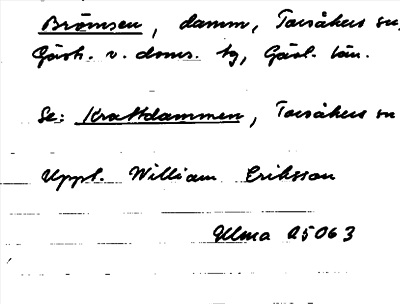 Brömsen, damm, Torsåkers sn,
Gästr. v. doms. tg, Gävl. län.
Se: Krattdammen, Torsåkers sn
Uppl. William Eriksson
Ulma 25063